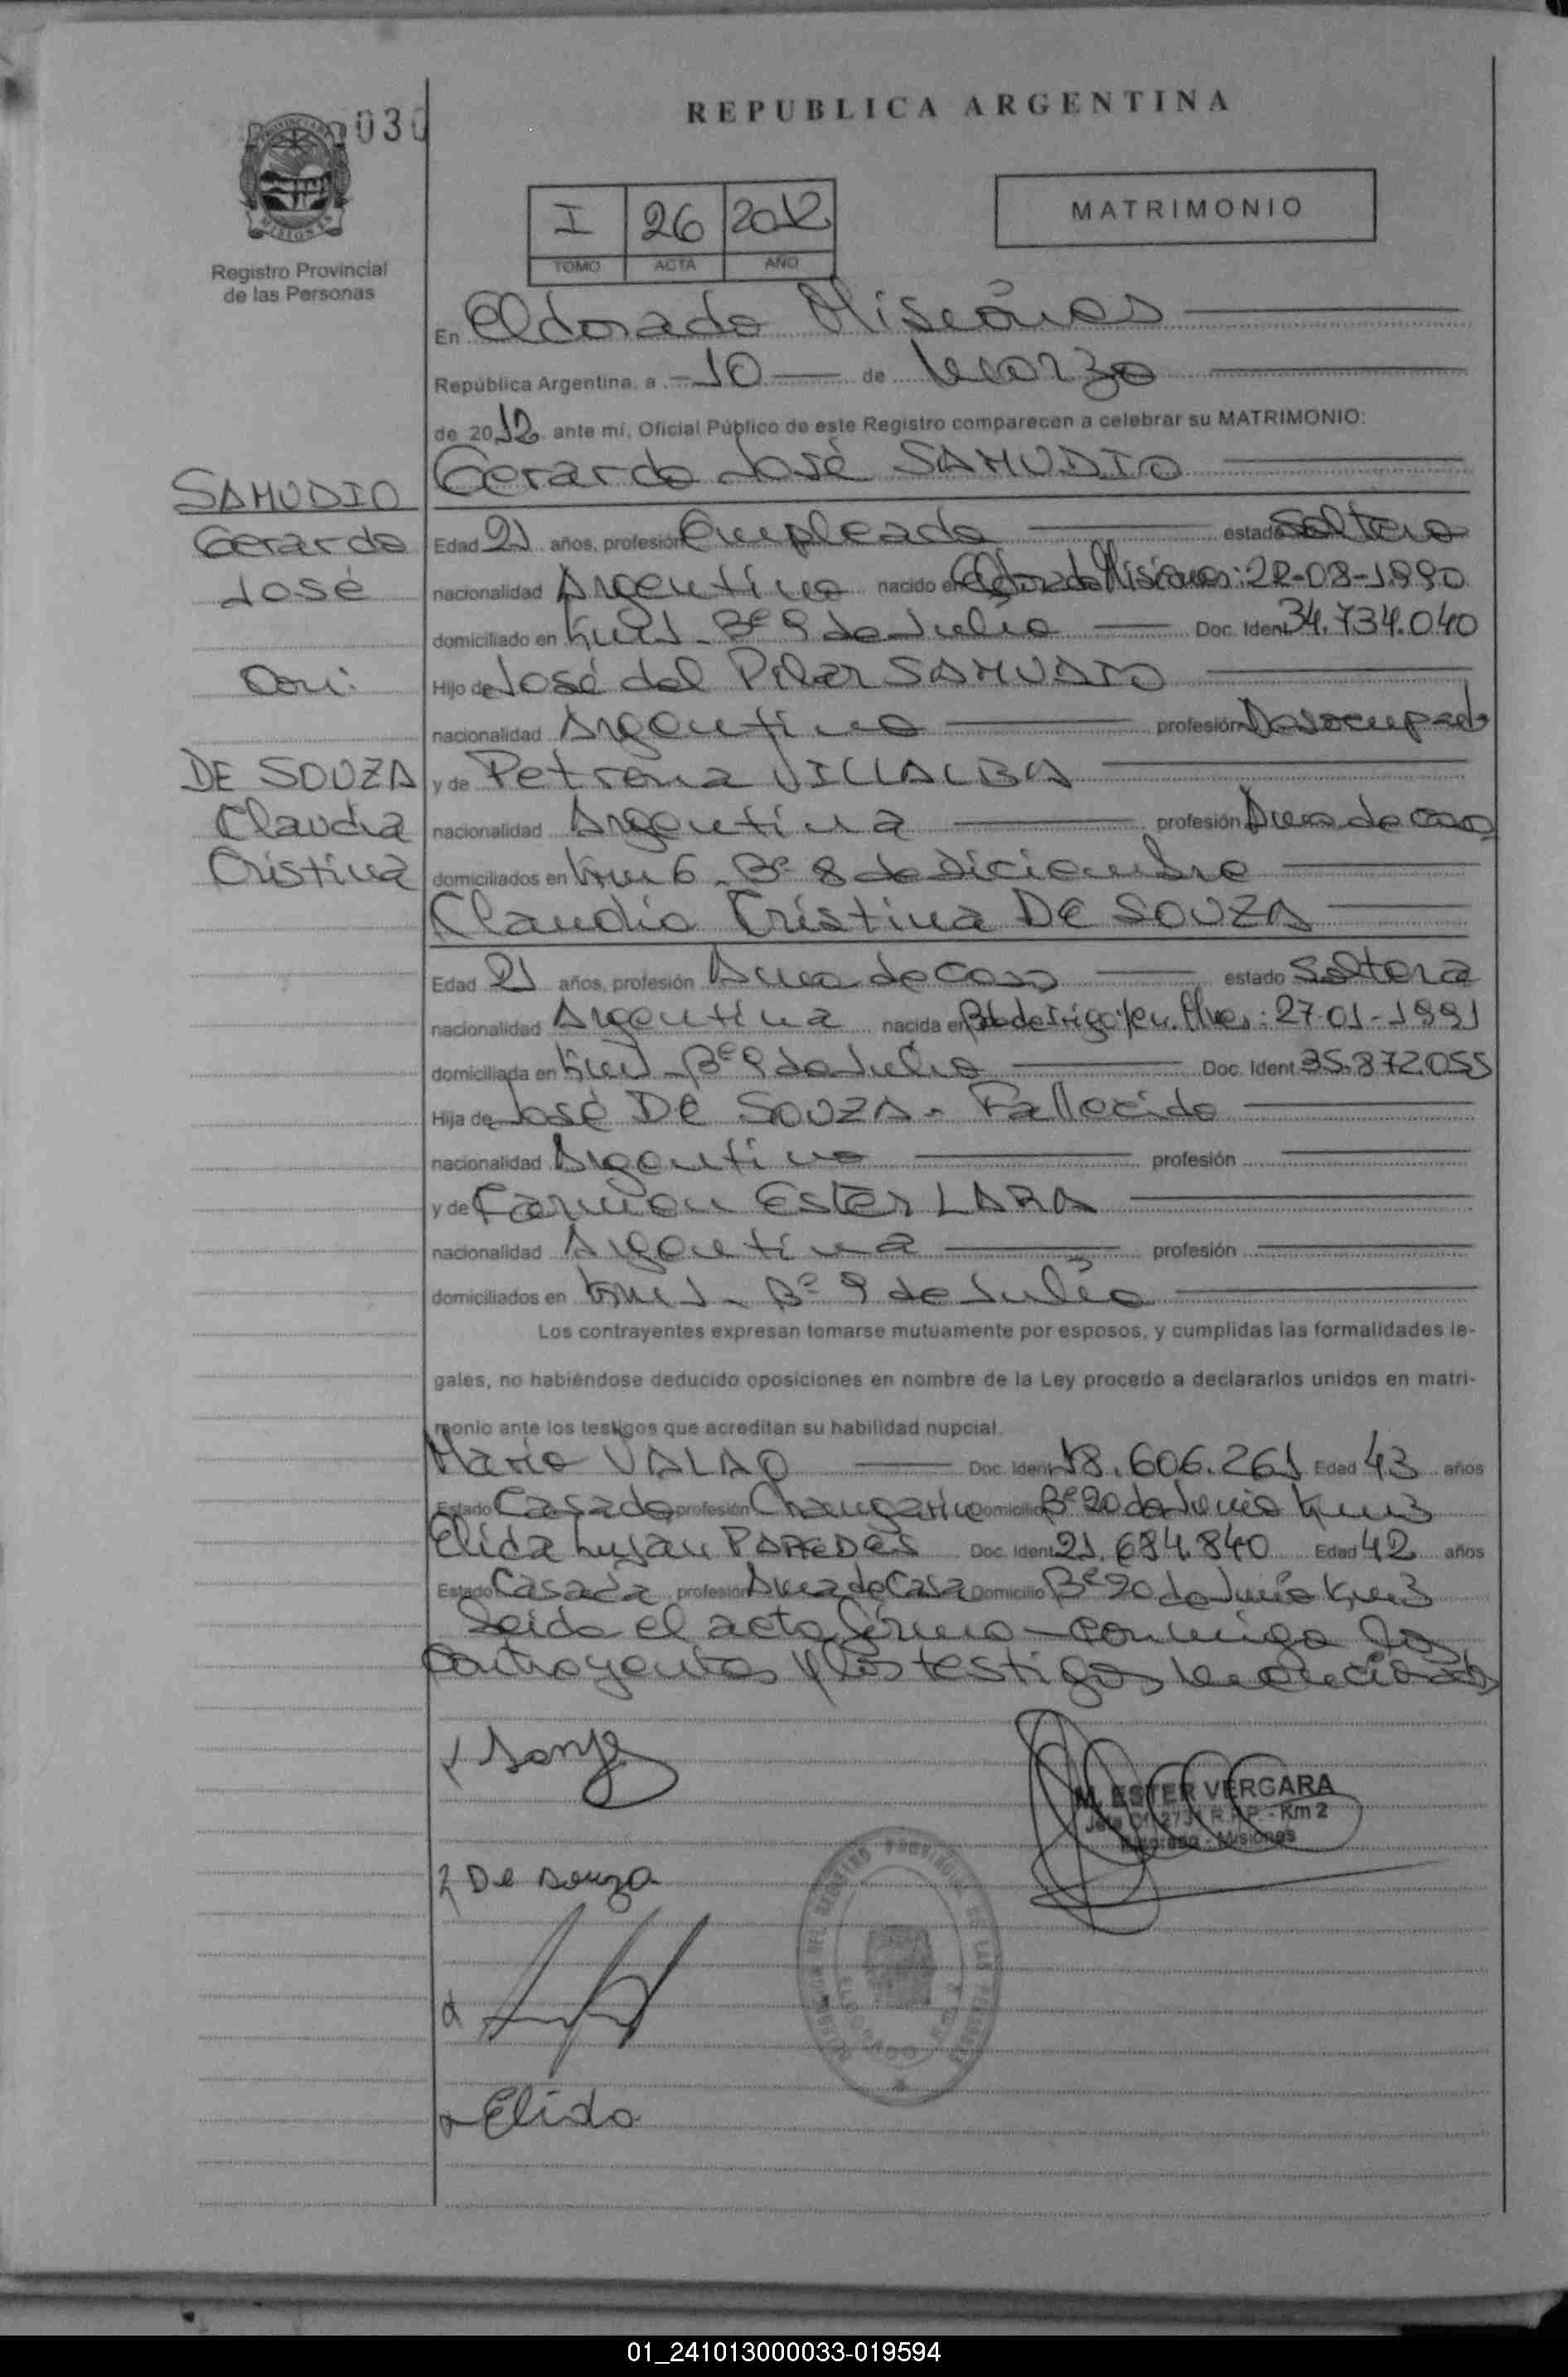 030
REPUBLICA ARGENTINA
I 26 2012
TOMO ACTA AÑO
MATRIMONIO
Registro Provincial
de las Personas
En Eldorado Misiones
República Argentina, a 10 de Marzo
de 2012 ante mí, Oficial Público de este Registro comparecen a celebrar su MATRIMONIO:
Gerardo José SAMUDIO
SAMUDIO
Gerardo
José
Con:
DE SOUZA
Claudia
Cristina
Edad 21 años, profesión Empleado estado Soltero
nacionalidad Argentino nacido en Eldorado Misiones: 22-08-1990
domiciliado en Km 1 - Bº 9 de Julio Doc. Ident. 34.734.040
Hijo de José del Pilar SAMUDIO
nacionalidad Argentino profesión Desocupado
y de Petrona VILLALBA
nacionalidad Argentina profesión Ama de casa
domiciliados en Km 6 - Bº 8 de Diciembre
Claudia Cristina DE SOUZA
Edad 21 años, profesión Ama de Casa estado Soltera
nacionalidad Argentina nacida en : 27-01-1991
domiciliada en Km 1 - Bº 9 de Julio Doc. Ident. 35.872.055
Hija de José DE SOUZA - Fallecido
nacionalidad Argentino profesión
y de Carmen Ester LARA
nacionalidad Argentina profesión
domiciliados en Km 1 - Bº 9 de Julio
Los contrayentes expresan tomarse mutuamente por esposos, y cumplidas las formalidades le-
gales, no habiéndose deducido oposiciones en nombre de la Ley procedo a declararlos unidos en matri-
monio ante los testigos que acreditan su habilidad nupcial.
Mario Doc. Ident. 18.606.261 Edad 43 años
Estado Casado profesión Changarin Domicilio Bº 20 de Junio Km 3
Elida Lujan PAREDES Doc. Ident. 21.684.840 Edad 42 años
Estado Casada profesión Ama de Casa Domicilio Bº 20 de Junio Km 3
Leida el acta firman conmigo los
contrayentes y los testigos mencionados
M. ESTER VERGARA
Km 2
Eldorado - Misiones
De Souza
Elida
01_241013000033-019594